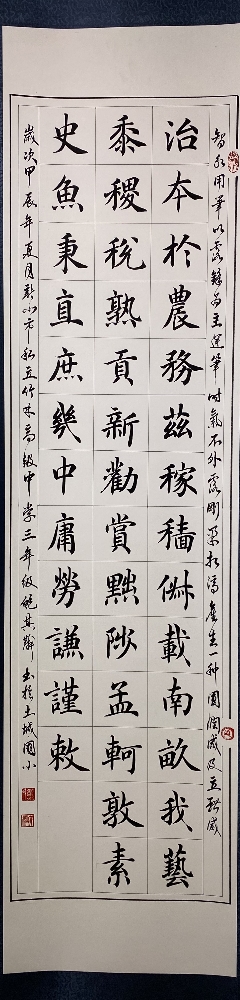 智永用筆以露鋒為主運筆時氣不外露剛柔相濟產生一種圓潤感及立體感
治本於農務茲稼穡俶載南畝我藝
黍稷稅熟貢新勸賞黜陟孟軻敦素
史魚秉直庶幾中庸勞謙謹敕
歲次甲辰年夏月新北市私立竹林高級中學三年級 書於土城國小